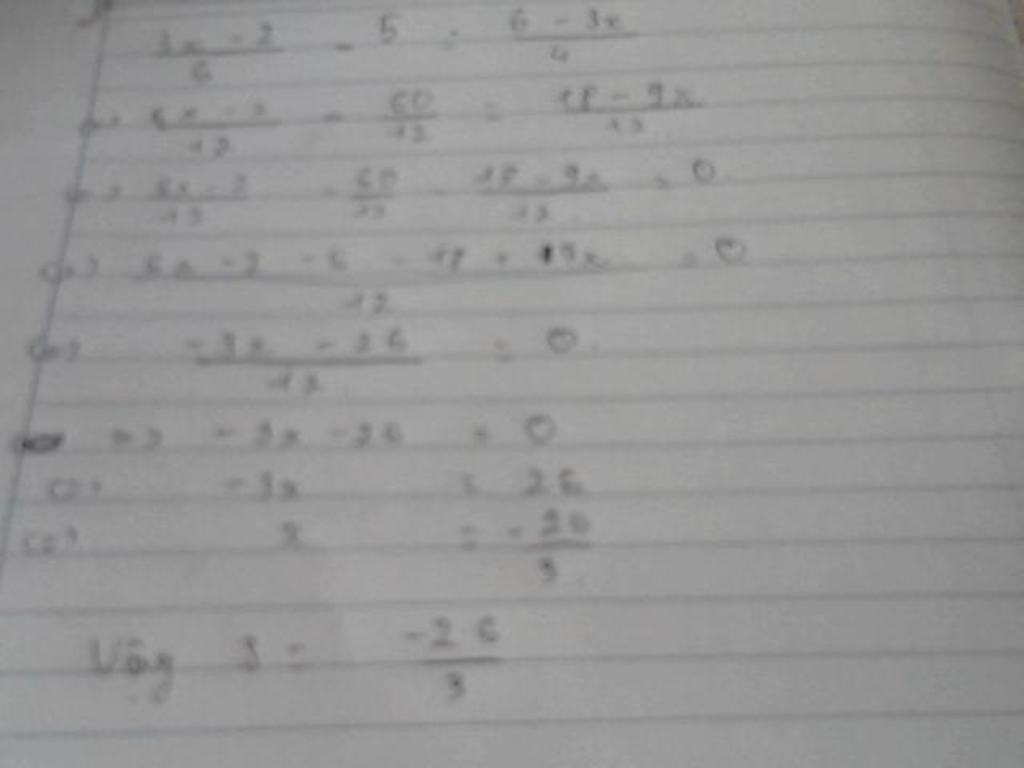 3x - 2 / 6 - 5 = 6 - 3x / 4
<=> 6x - 2 / 12 - 60 / 12 = 18 - 9x / 12
<=> 6x - 2 / 12 - 60 / 12 - 18 - 9x / 12 = 0
<=> 6x - 2 - 6 - 18 + 9x / 12 = 0
<=> - 3x - 26 / 12 = 0
=> - 3x - 26 = 0
<=> - 3x = 26
<=> x = - 26 / 3
Vậy S = - 26 / 3